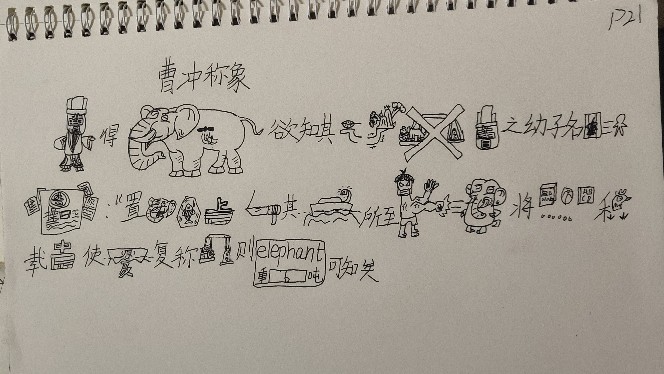 P21
曹冲称象
得 欲知其 之幼子名
:"置 其 所至 将 …… 和
载 使 复称 则 elephant 重 吨 可知矣